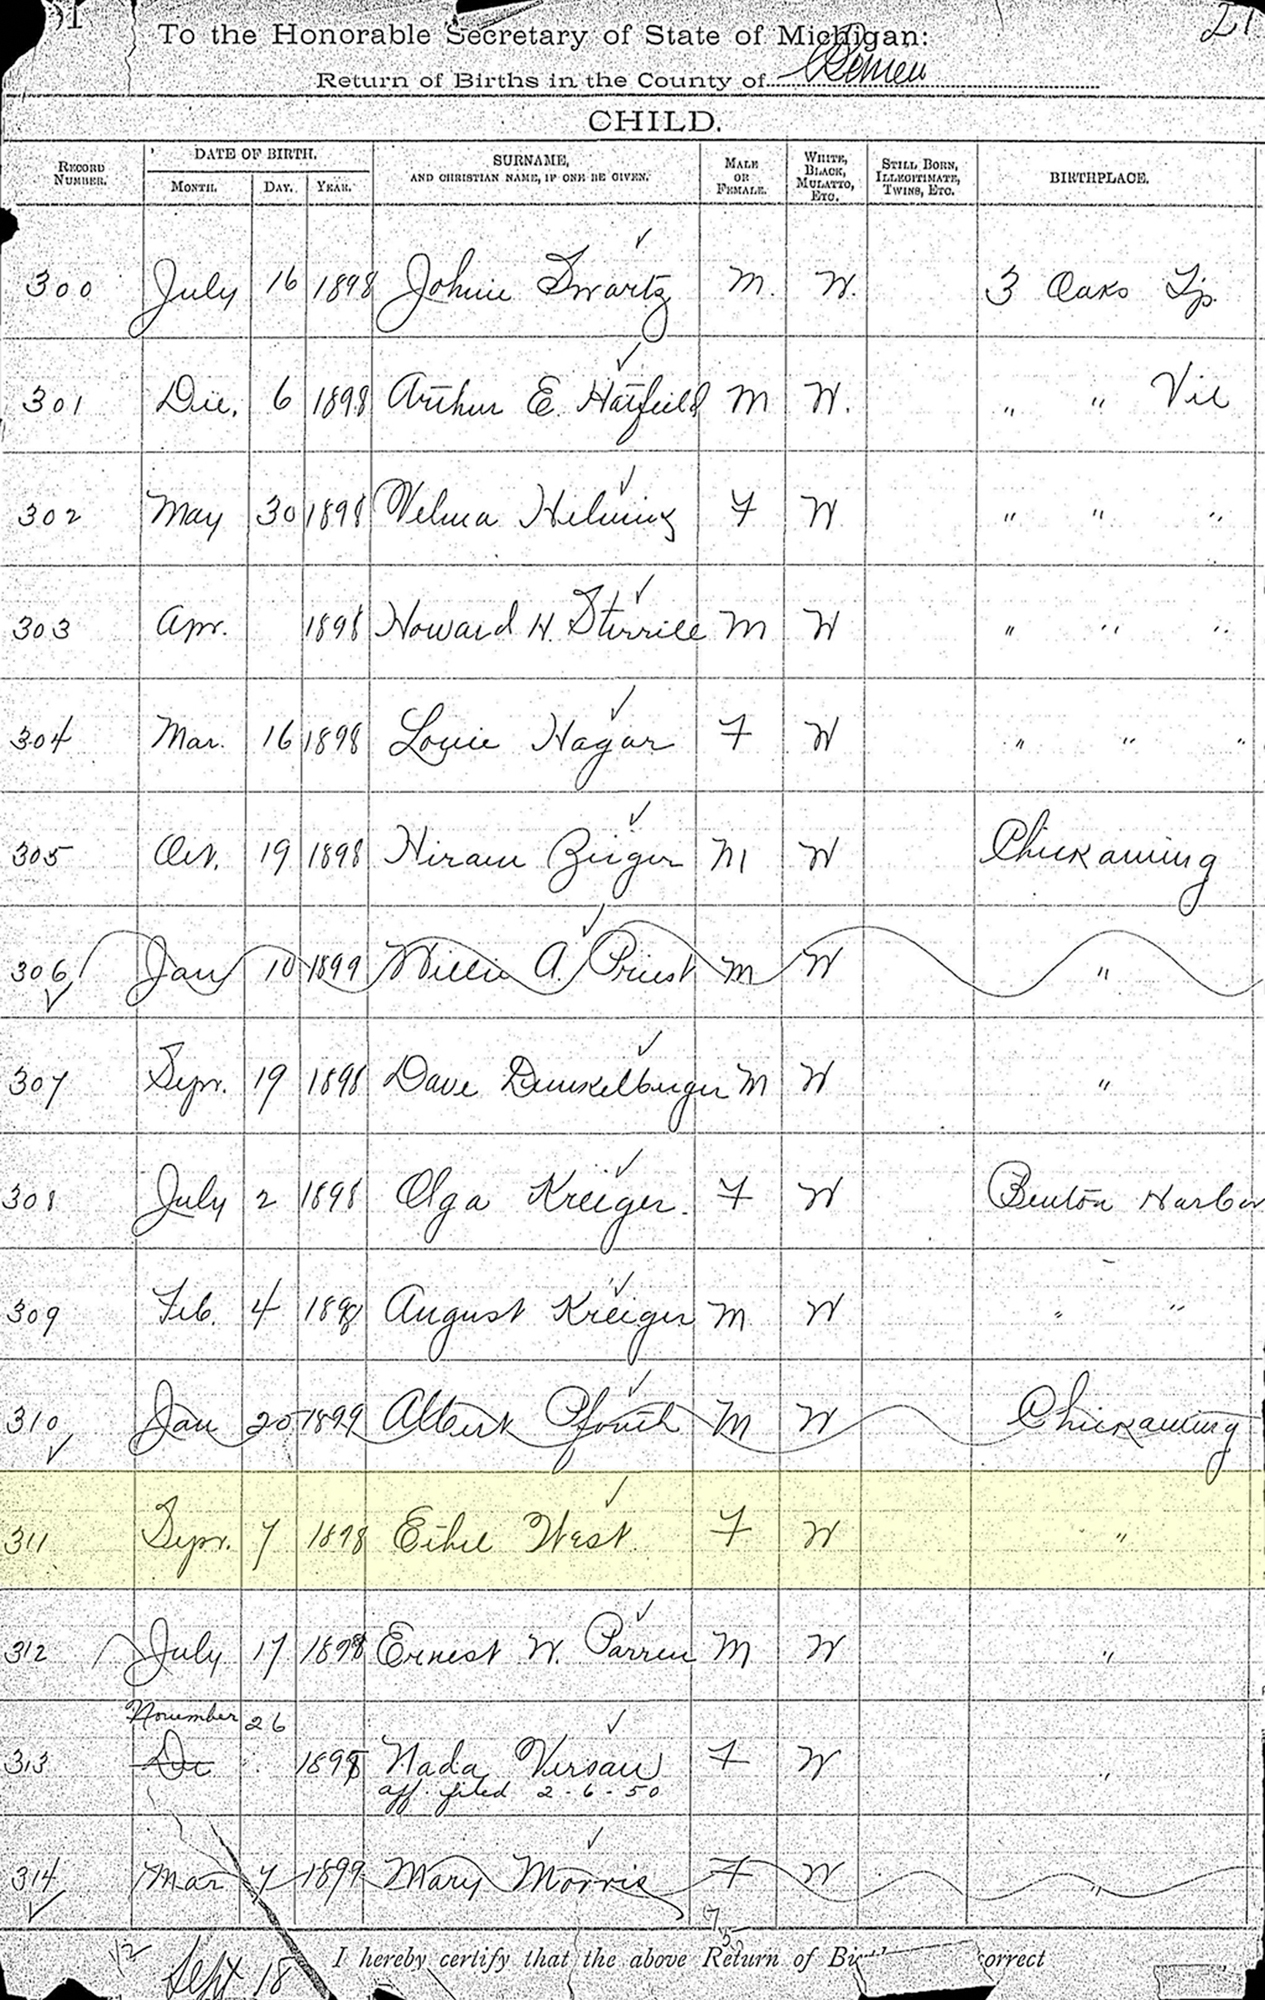 51
21
To the Honorable Secretary of State of Michigan:
Return of Births in the County of Berrien
CHILD.
RECORD NUMBER. DATE OF BIRTH. MONTH. DAY. YEAR. SURNAME, AND CHRISTIAN NAME, IF ONE BE GIVEN. MALE OR FEMALE. WHITE, BLACK, MULATTO, ETC. STILL BORN, ILLEGITIMATE, TWINS, ETC. BIRTHPLACE.
300 July 16 1898 Johnie Swartz M. W. 3 Oaks Tp.
301 Dec. 6 1898 Arthur E. Hatfield M W. " " Vil
302 May 30 1898 Velma M W " " "
303 Apr. 1898 Howard H. M W " " "
304 Mar. 16 1898 Louie Hagar F W " " "
305 Oct. 19 1898 Hiram Zeiger M W Chickaming
306 Jan 10 1899 Willie A. Priest M W "
307 Sept. 19 1898 Dave Dunkelberger M W "
308 July 2 1898 Olga Kreiger. F W Benton Harbor
309 Feb. 4 1898 August Kreiger M W " "
310 Jan 20 1899 Albert M W Chickaming
311 Sept. 7 1898 Ethel West. F W "
312 July 17 1898 Ernest W. Parren M W "
November 26
313 Dec 1898 Nada Versaw F W "
aff. filed 2-6-50
314 Mar 7 1899 Mary Morris F W "
I hereby certify that the above Return of Bi orrect
Sept 18